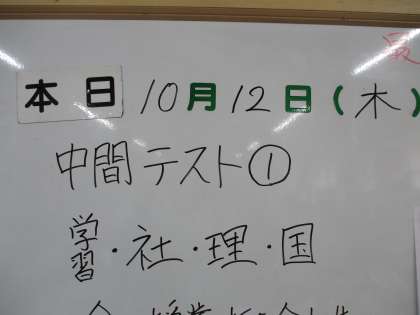 本日 10月12日(木)
中間テスト①
学習・社・理・国